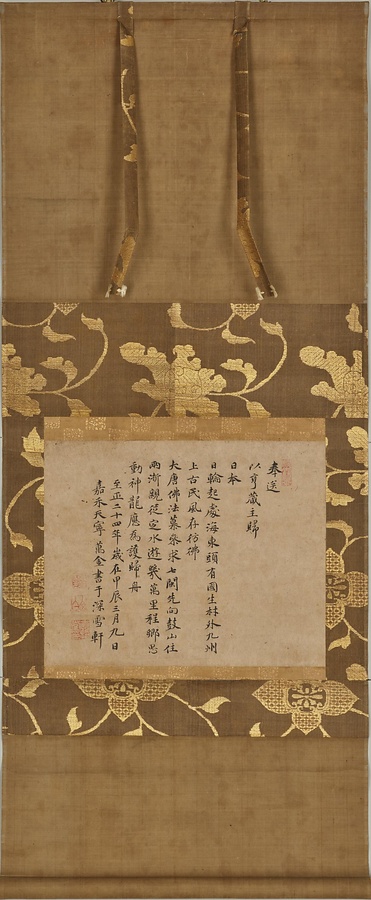 奉送
以亨藏主歸
日本
日輪起處海東頭有國生林外九州
上古民風存彷佛
大唐佛法慕參求七閩先向鼓山住
兩浙親從定水遊幾萬里程鄉思
動神龍應為護歸舟
至正二十四年歲在甲辰三月九日
嘉禾天寧萬金書于深雪軒